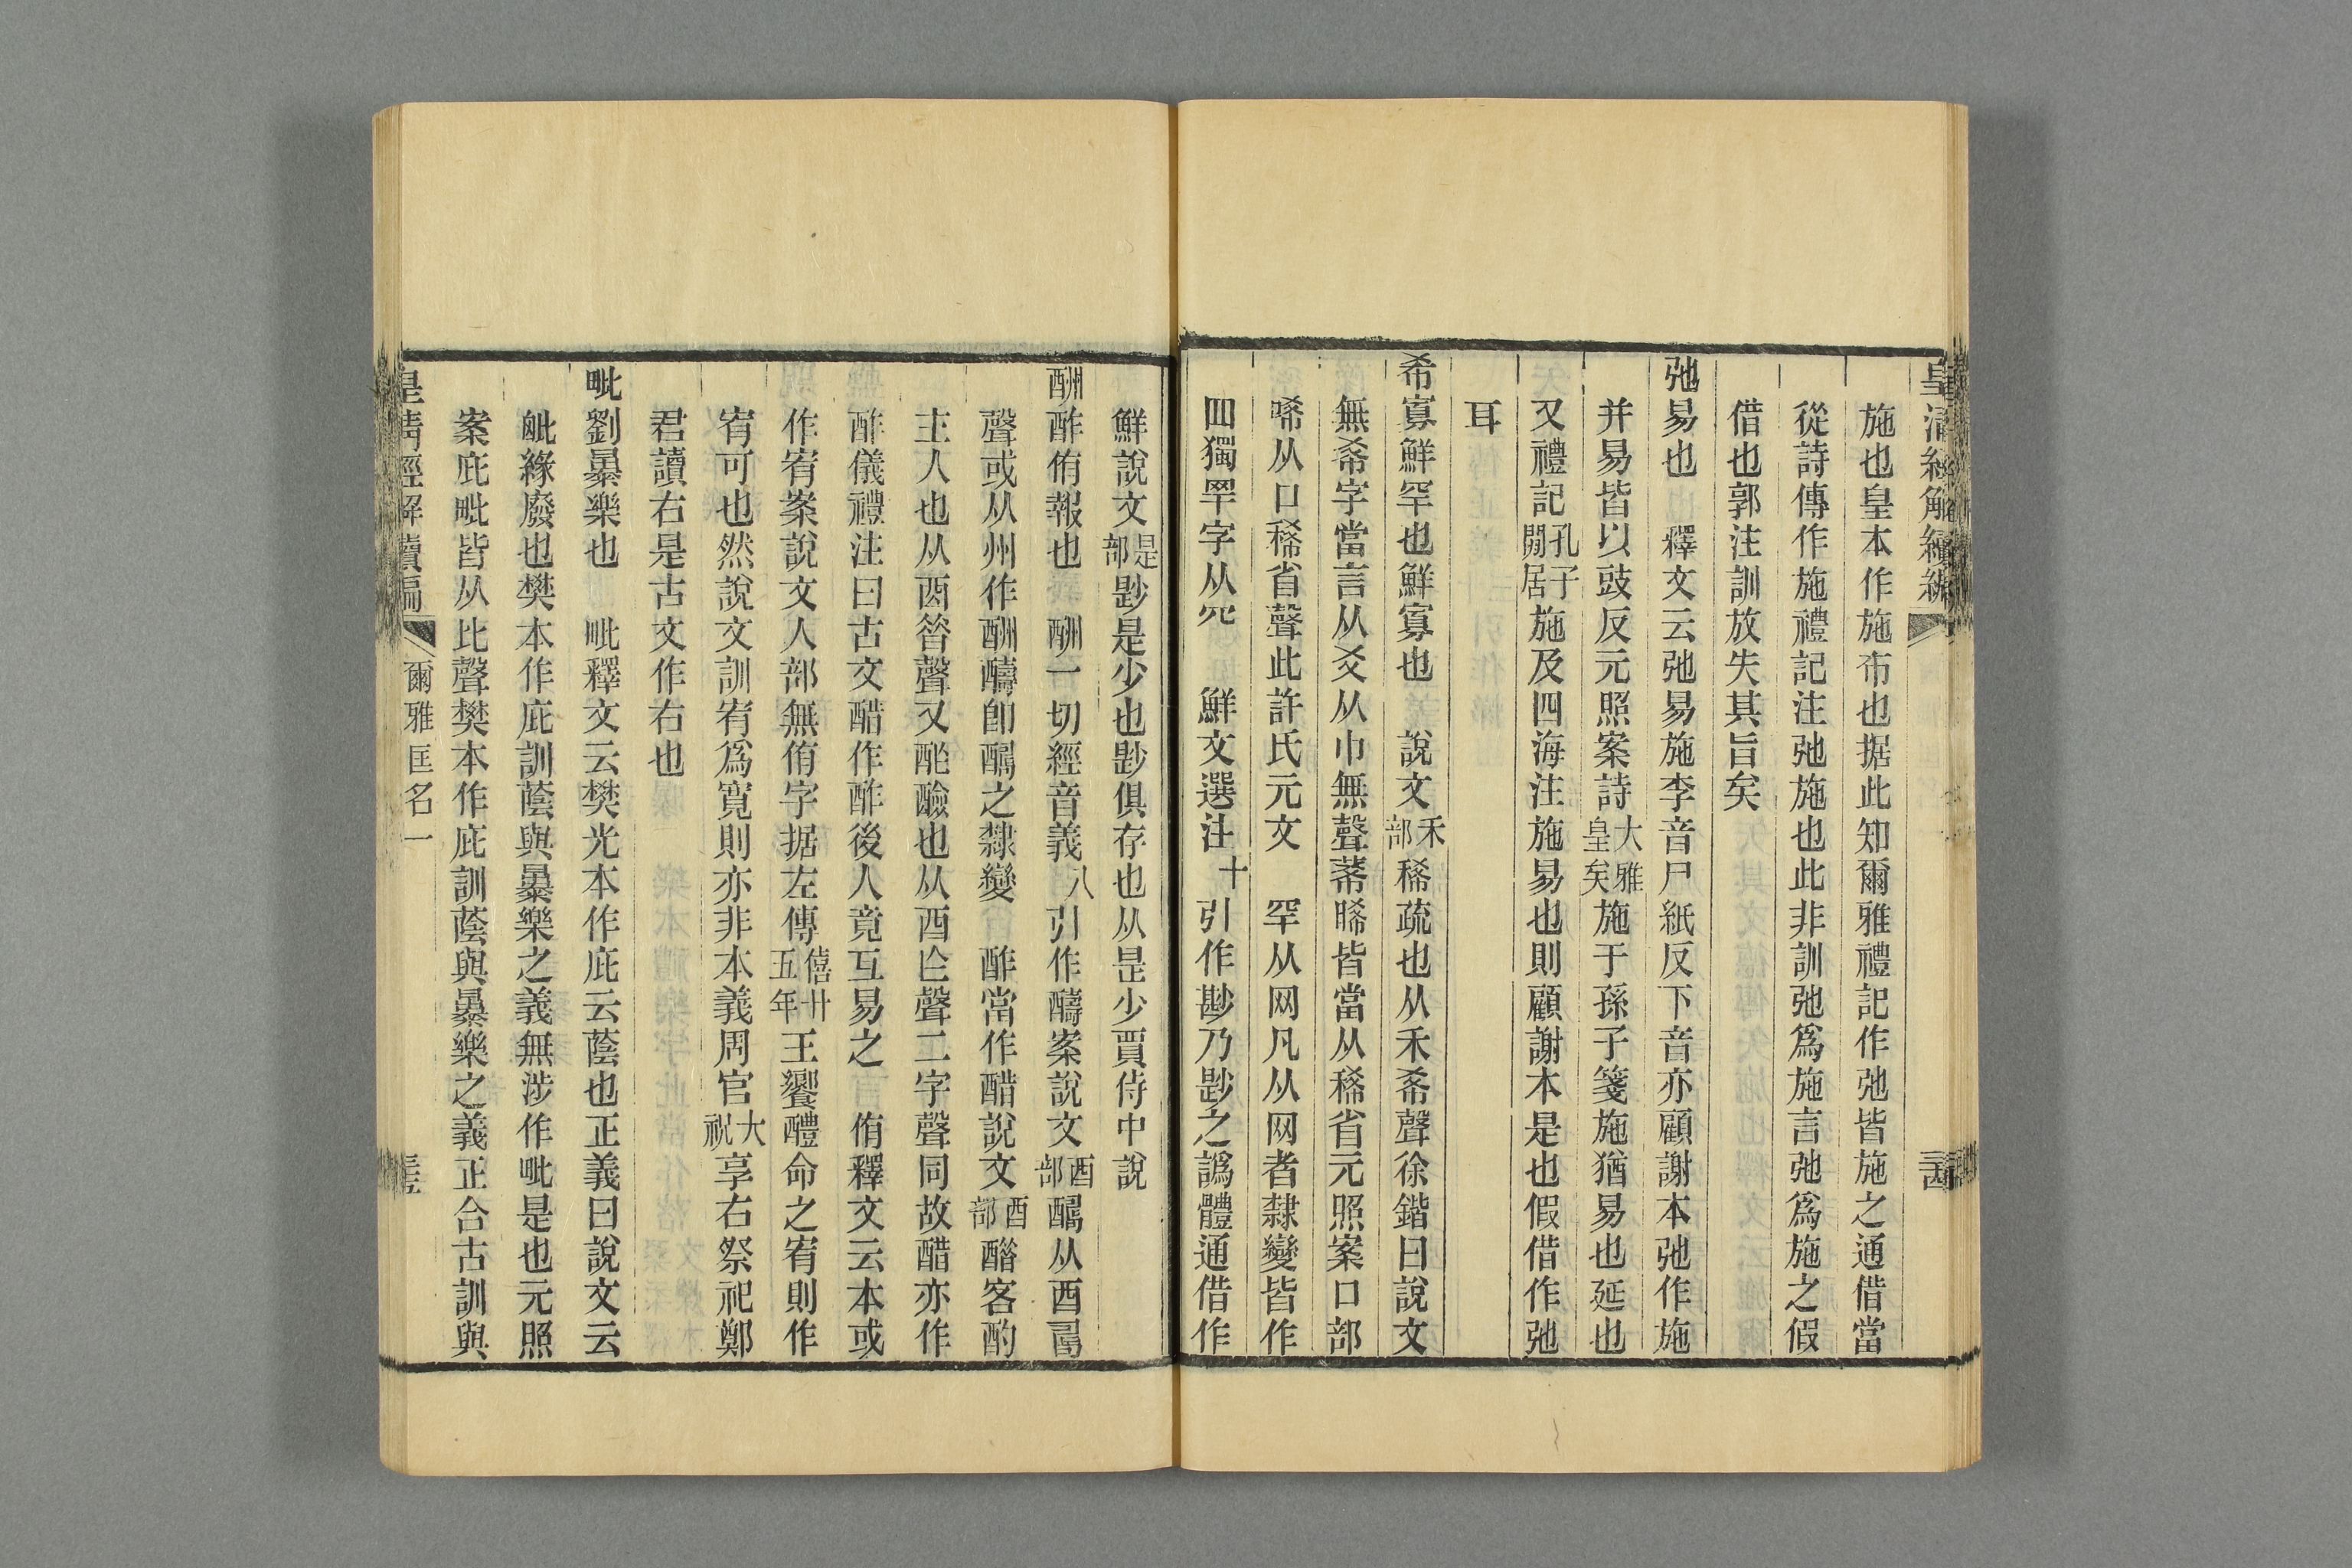 皇清經解續編
施也皇本作施布也据此知爾雅禮記作弛皆施之通借當
從詩傳作施禮記注弛施也此非訓弛爲施言弛爲施之假
借也郭注訓放失其旨矣
弛易也　釋文云弛易施李音尸紙反下音亦顧謝本弛作施
并易皆以豉反元照案詩大雅皇矣施于孫子箋施猶易也延也
又禮記孔子閒居施及四海注施易也則顧謝本是也假借作弛
耳
希寡鮮罕也鮮寡也　說文禾部稀疏也从禾希聲徐鍇曰說文
無希字當言从爻从巾無聲莃晞皆當从稀省元照案口部
唏从口稀省聲此許氏元文　罕从网凡从网者隸變皆作
罒獨罕字从㓁　鮮文選注十引作尠乃尟之譌體通借作
鮮說文是部尟是少也尟俱存也从是少賈侍中說
酬酢侑報也　酬一切經音義八引作醻案說文酉部醻从酉𠷎
聲或从州作酬醻卽醻之隸變　酢當作醋說文酉部醋客酌
主人也从酉昝聲又酢醶也从酉乍聲二字聲同故醋亦作
酢儀禮注曰古文醋作酢後人竟互易之　侑釋文云本或
作宥案說文人部無侑字据左傳僖廿五年王饗醴命之宥則作
宥可也然說文訓宥爲寬則亦非本義周官大祝享右祭祀鄭
君讀右是古文作右也
毗劉㬥樂也　毗釋文云樊光本作庇云蔭也正義曰說文云
毗緣廢也樊本作庇訓蔭與㬥樂之義無涉作毗是也元照
案庇毗皆从比聲樊本作庇訓蔭與㬥樂之義正合古訓與
皇清經解續編　爾雅匡名一